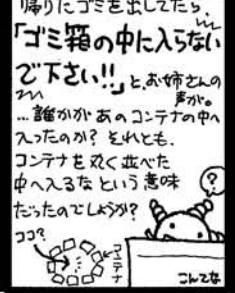 帰りにゴミを出してたら、
「ゴミ箱の中に入らない
で下さい!!」と、お姉さんの
声が。
…誰かがあのコンテナの中へ
入ったのか? それとも、
コンテナを丸く並べた
中へ入るな という意味
だったのでしょうか?
?
ココ?
コンテナ
こんてな